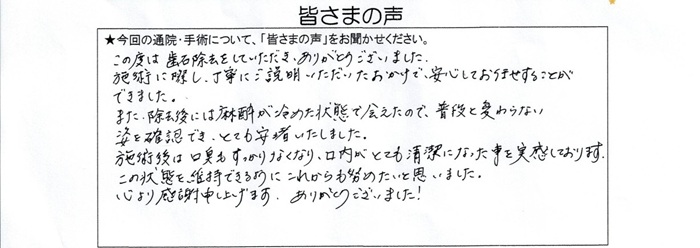 皆さまの声
★今回の通院・手術について、「皆さまの声」をお聞かせください。
この度は歯石除去をしていただき、ありがとうございました。
施術に際し、丁寧にご説明いただいたおかげで、安心してお任せすることが
できました。
また、除去後には麻酔が冷めた状態で会えたので、普段と変わらない
姿を確認でき、とても安堵いたしました。
施術後は口臭もすっかりなくなり、口内がとても清潔になった事を実感しております。
この状態を維持できるようにこれからも努めたいと思いました。
心より感謝申し上げます。ありがとうございました!